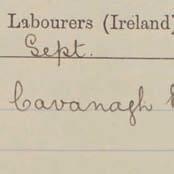 Labourers (Ireland)
Sept.
Cavanagh